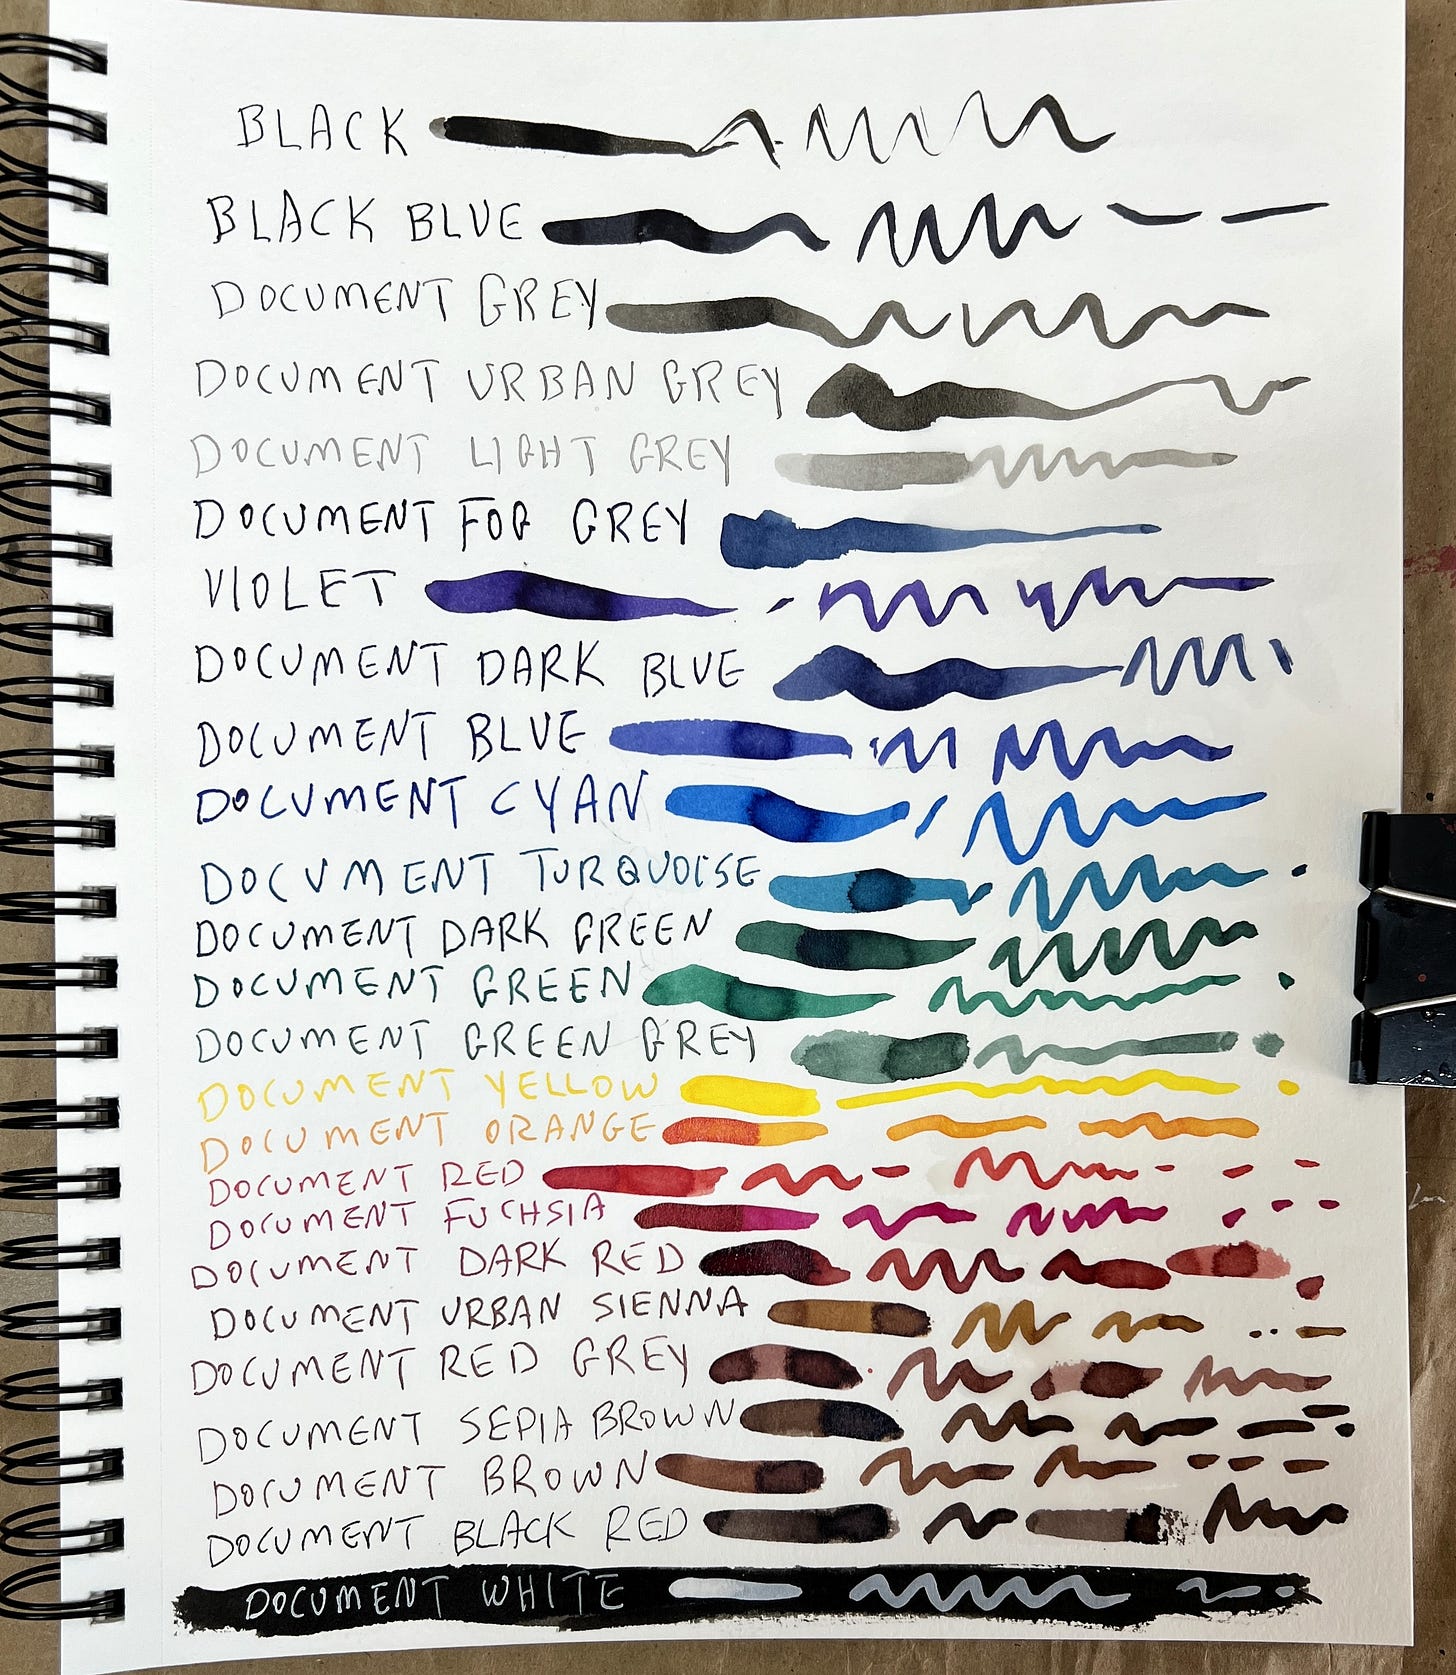 BLACK
BLACK BLUE
DOCUMENT GREY
DOCUMENT URBAN GREY
DOCUMENT LIGHT GREY
DOCUMENT FOG GREY
VIOLET
DOCUMENT DARK BLUE
DOCUMENT BLUE
DOCUMENT CYAN
DOCUMENT TURQUOISE
DOCUMENT DARK GREEN
DOCUMENT GREEN
DOCUMENT GREEN GREY
DOCUMENT YELLOW
DOCUMENT ORANGE
DOCUMENT RED
DOCUMENT FUCHSIA
DOCUMENT DARK RED
DOCUMENT URBAN SIENNA
DOCUMENT RED GREY
DOCUMENT SEPIA BROWN
DOCUMENT BROWN
DOCUMENT BLACK RED
DOCUMENT WHITE